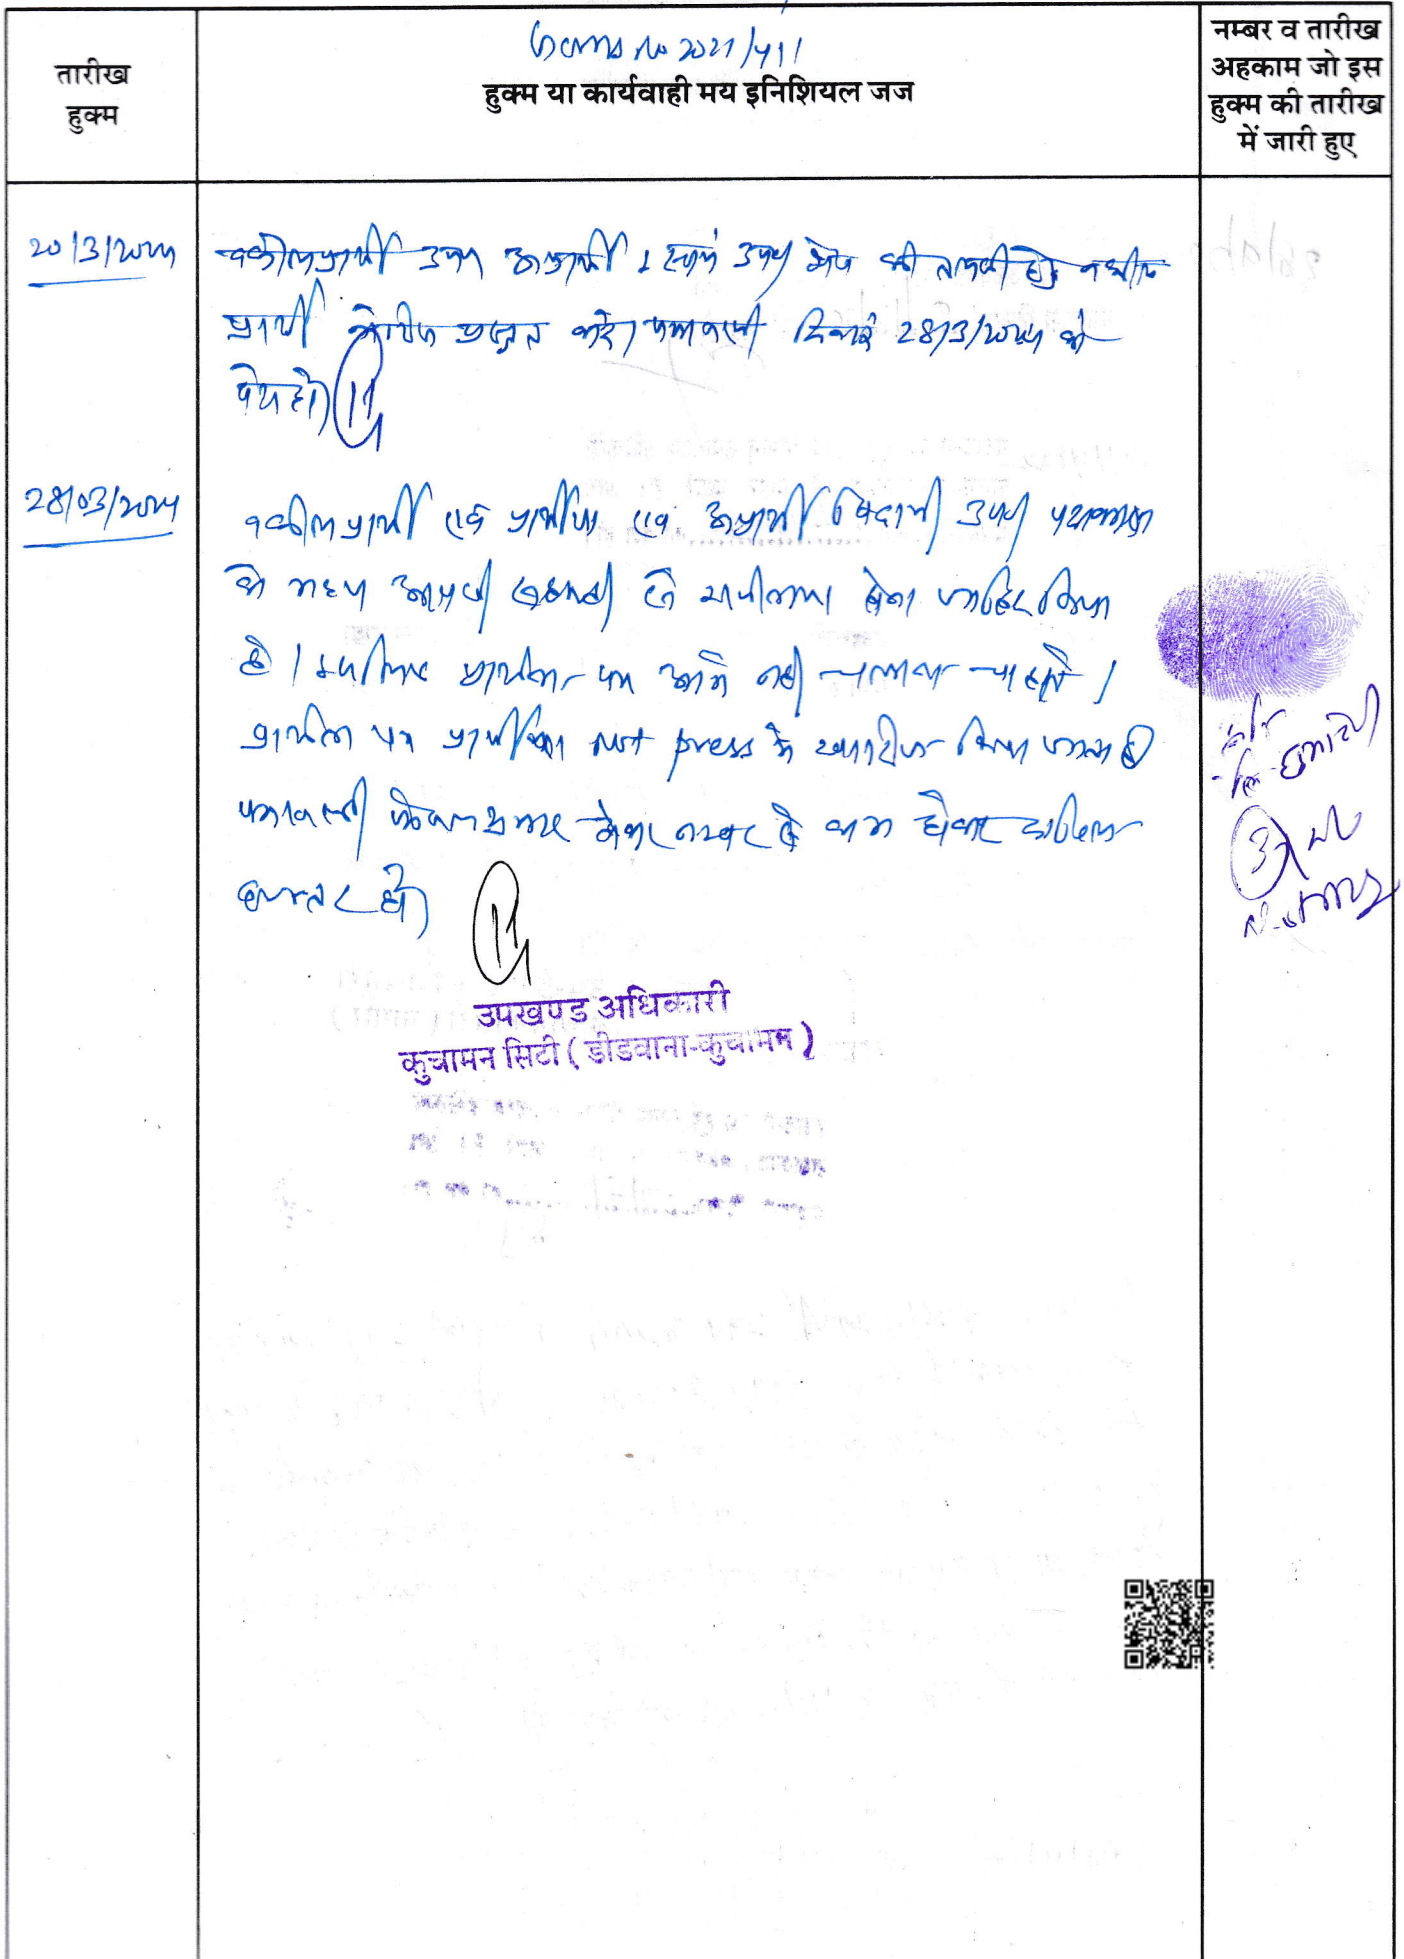 तारीख
हुक्म
GCMS No 2021/411
हुक्म या कार्यवाही मय इनिशियल जज
नम्बर व तारीख
अहकाम जो इस
हुक्म की तारीख
में जारी हुए
20/3/2024
वकील प्रार्थी उप० अप्रार्थी 1 स्वयं उप० शेष की तलबी हेतु वकील
प्रार्थी नोटिस प्रस्तुत करे। पत्रावली दिनांक 28/3/2024 को
पेश हो।
28/03/2024
वकील प्रार्थी एवं प्रार्थीया एवं अप्रार्थी उप०
के मध्य आपसी होना जाहिर किया
है। इसलिए प्रार्थना पत्र आगे नही चलाना चाहते।
प्रार्थना पत्र प्रार्थीया Not press मे खारीज किया जाता है
पत्रावली फैसल शुमार होकर नम्बर से कम होकर दाखिल
दफ्तर हो।
उपखण्ड अधिकारी
कुचामन सिटी ( डीडवाना-कुचामन )